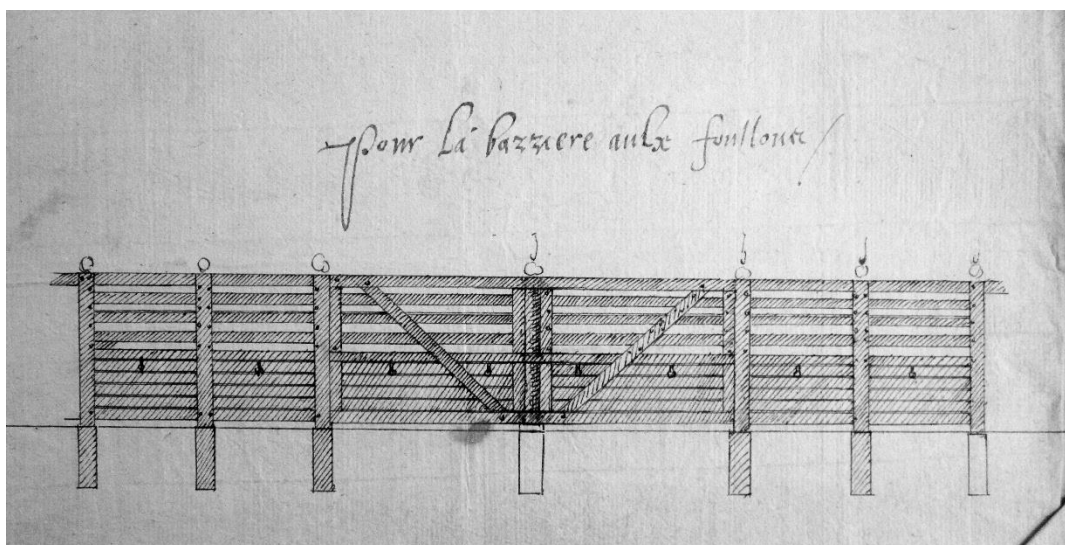 pour la barriere aulx foullons